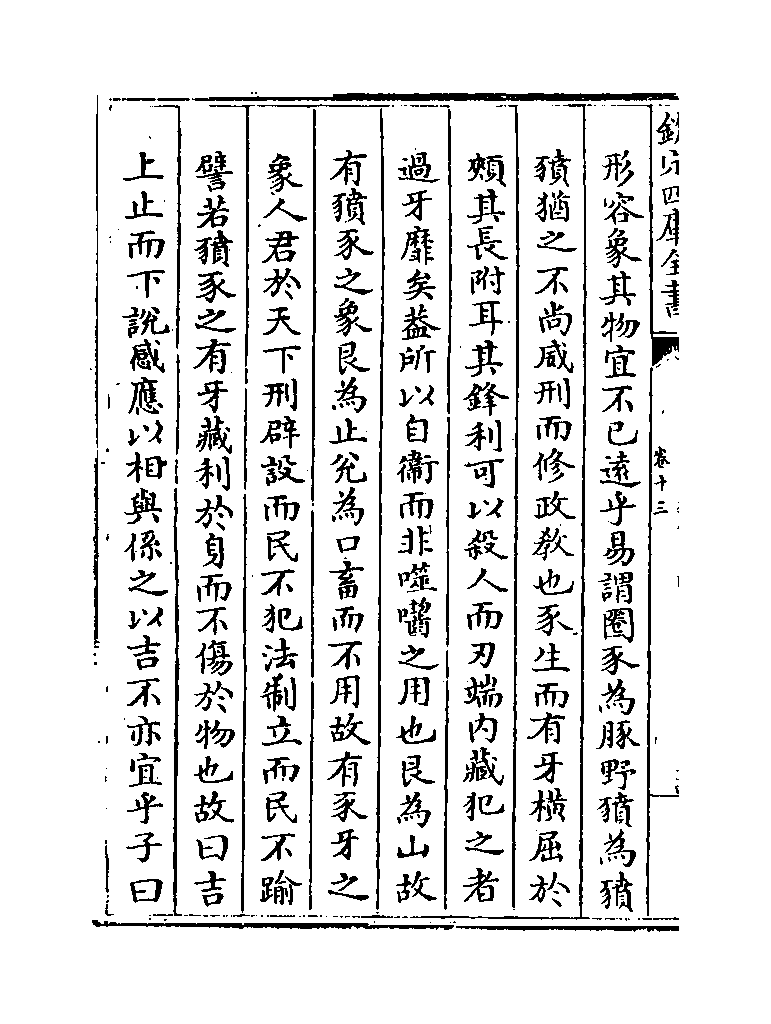 欽定四庫全書
卷十三
形容象其物宜不已遠乎易謂圈豕為豚野豶為豶
豶猶之不尚威刑而修政敎也豕生而有牙橫屈於
頰其長附耳其鋒利可以殺人而刃端内藏犯之者
過牙靡矣葢所以自衞而非噬嚙之用也艮為山故
有豶豕之象艮為止兊為口畜而不用故有豕牙之
象人君於天下刑辟設而民不犯法制立而民不踰
譬若豶豕之有牙藏利於身而不傷於物也故曰吉
上止而下說感應以相與係之以吉不亦宜乎子曰